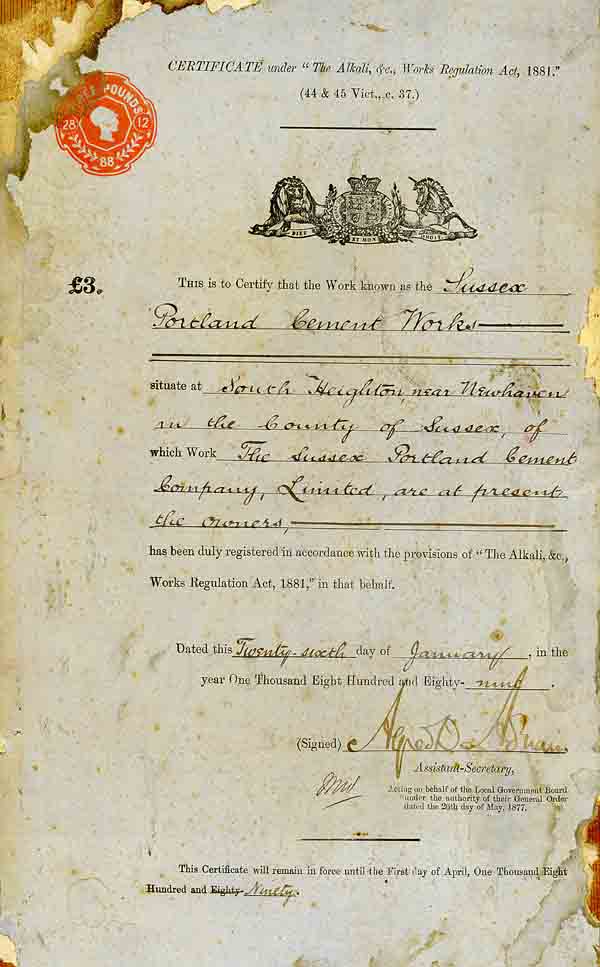 CERTIFICATE under "The Alkali, &c., Works Regulation Act, 1881."
(44 & 45 Vict., c. 37.)
THREE POUNDS
28 12
88
DIEU ET MON DROIT
£3.
THIS is to Certify that the Work known as the Sussex
Portland Cement Works
situate at South Heighton near Newhaven
in the County of Sussex, of
which Work The Sussex Portland Cement
Company, Limited, are at present
the owners,
has been duly registered in accordance with the provisions of "The Alkali, &c.,
Works Regulation Act, 1881," in that behalf.
Dated this Twenty-sixth day of January, in the
year One Thousand Eight Hundred and Eighty-nine.
(Signed) Alfred D. Adrian
Assistant-Secretary,
Acting on behalf of the Local Government Board
under the authority of their General Order
dated the 26th day of May, 1877.
This Certificate will remain in force until the First day of April, One Thousand Eight
Hundred and Eighty- Ninety.